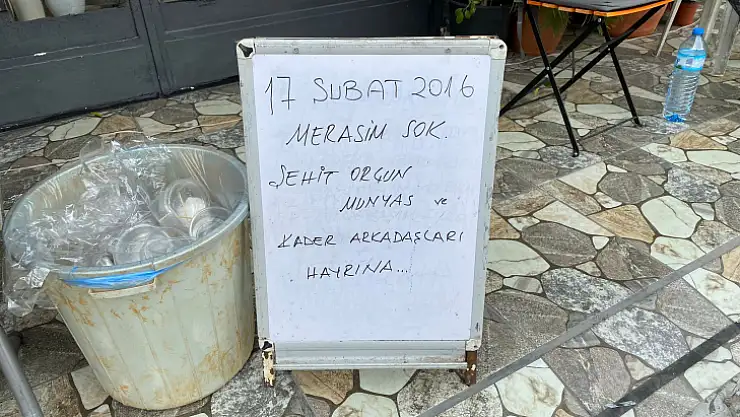 17 SUBAT 2016
MERASİM SOK.
ŞEHİT ORGUN
MUNYAS ve
KADER ARKADAŞLARI
HAYRINA...